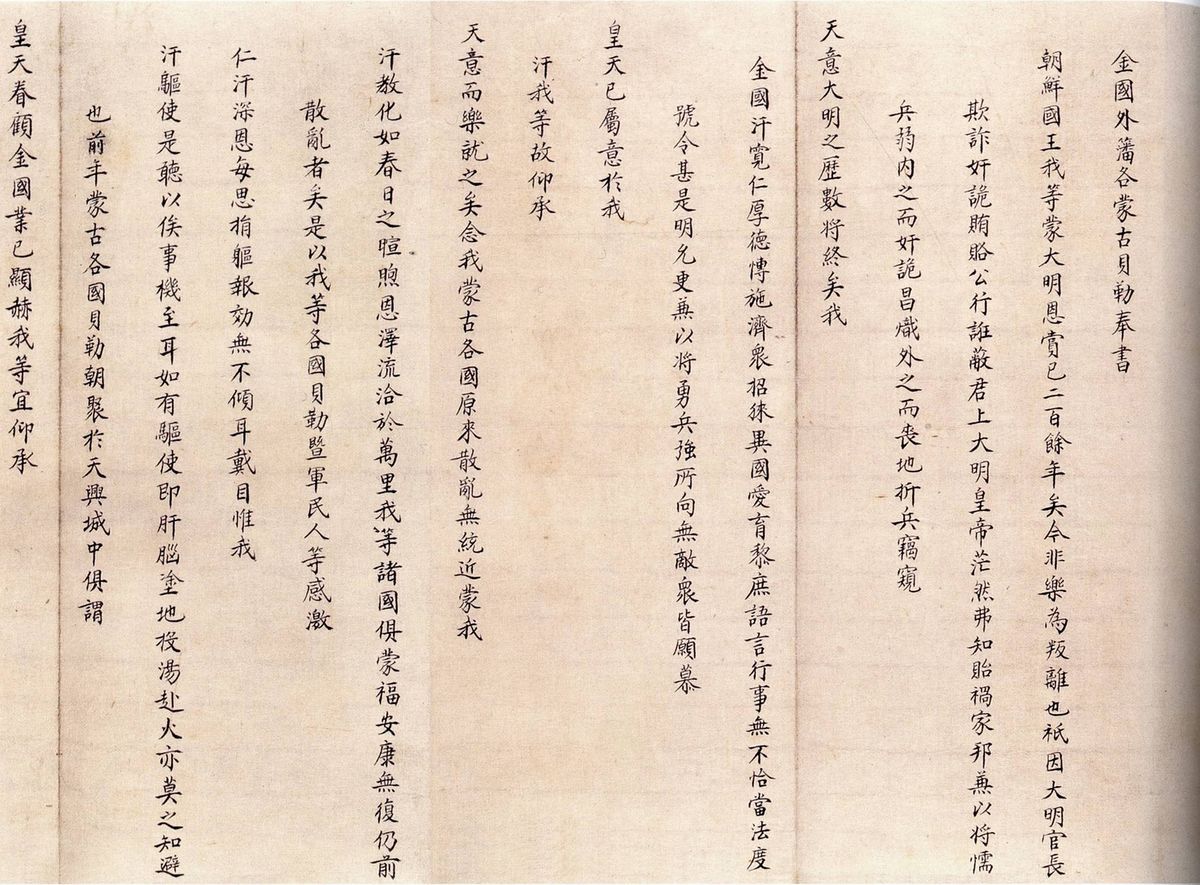 金國外藩各蒙古貝勒奉書
朝鮮國王我等蒙大明恩賞已二百餘年矣今非樂為叛離也祇因大明官長
欺詐奸詭賄賂公行誑蔽君上大明皇帝茫然弗知貽禍家邦兼以將懦
兵弱內之而奸詭昌熾外之而喪地折兵竊窺
天意大明之歷數將終矣我
金國汗寬仁厚德慱施濟眾招徠異國愛育黎庶語言行事無不恰當法度
號令甚是明允更兼以將勇兵強所向無敵眾皆願慕
皇天已屬意於我
汗我等故仰承
天意而樂就之矣念我蒙古各國原來散亂無統近蒙我
汗教化如春日之暄煦恩澤流洽於萬里我等諸國俱蒙福安康無復仍前
散亂者矣是以我等各國貝勒暨軍民人等感激
仁汗深恩每思捐軀報効無不傾耳戴目惟我
汗驅使是聽以俟事機至耳如有驅使即肝腦塗地投湯赴火亦莫之知避
也前年蒙古各國貝勒朝聚於天興城中俱謂
皇天眷顧金國業已顯赫我等宜仰承